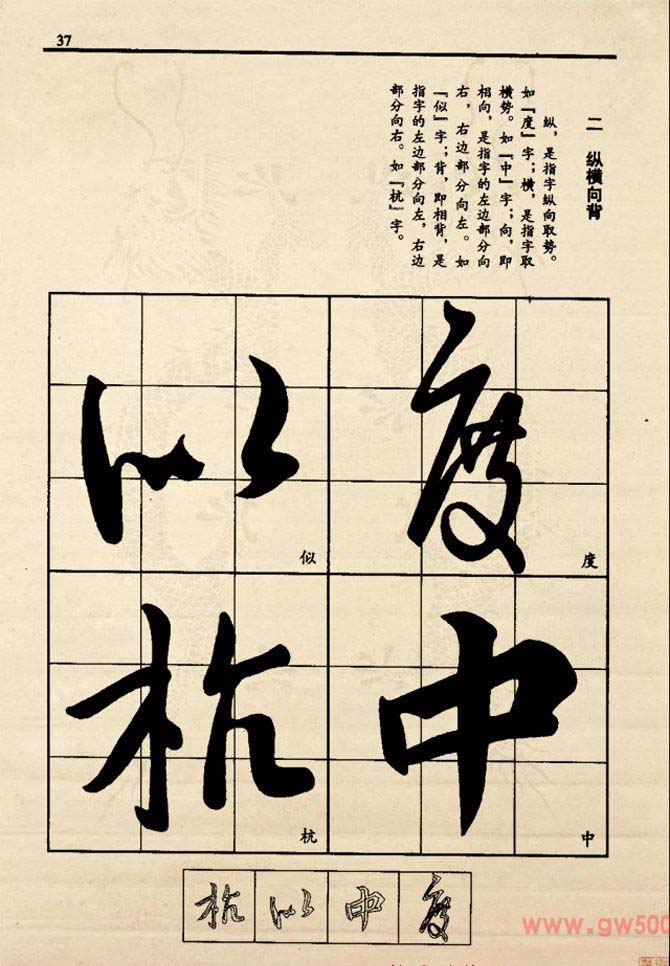 37
二 纵横向背
纵，是指字纵向取势。
如『度』字；横，是指字取
横势。如『中』字；向，即
相向，是指字的左边部分向
右，右边部分向左。如
『似』字；背，即相背，是
指字的左边部分向左，右边
部分向右。如『杭』字。
度
度
中
中
似
似
杭
杭
度
中
似
杭
www.gw500